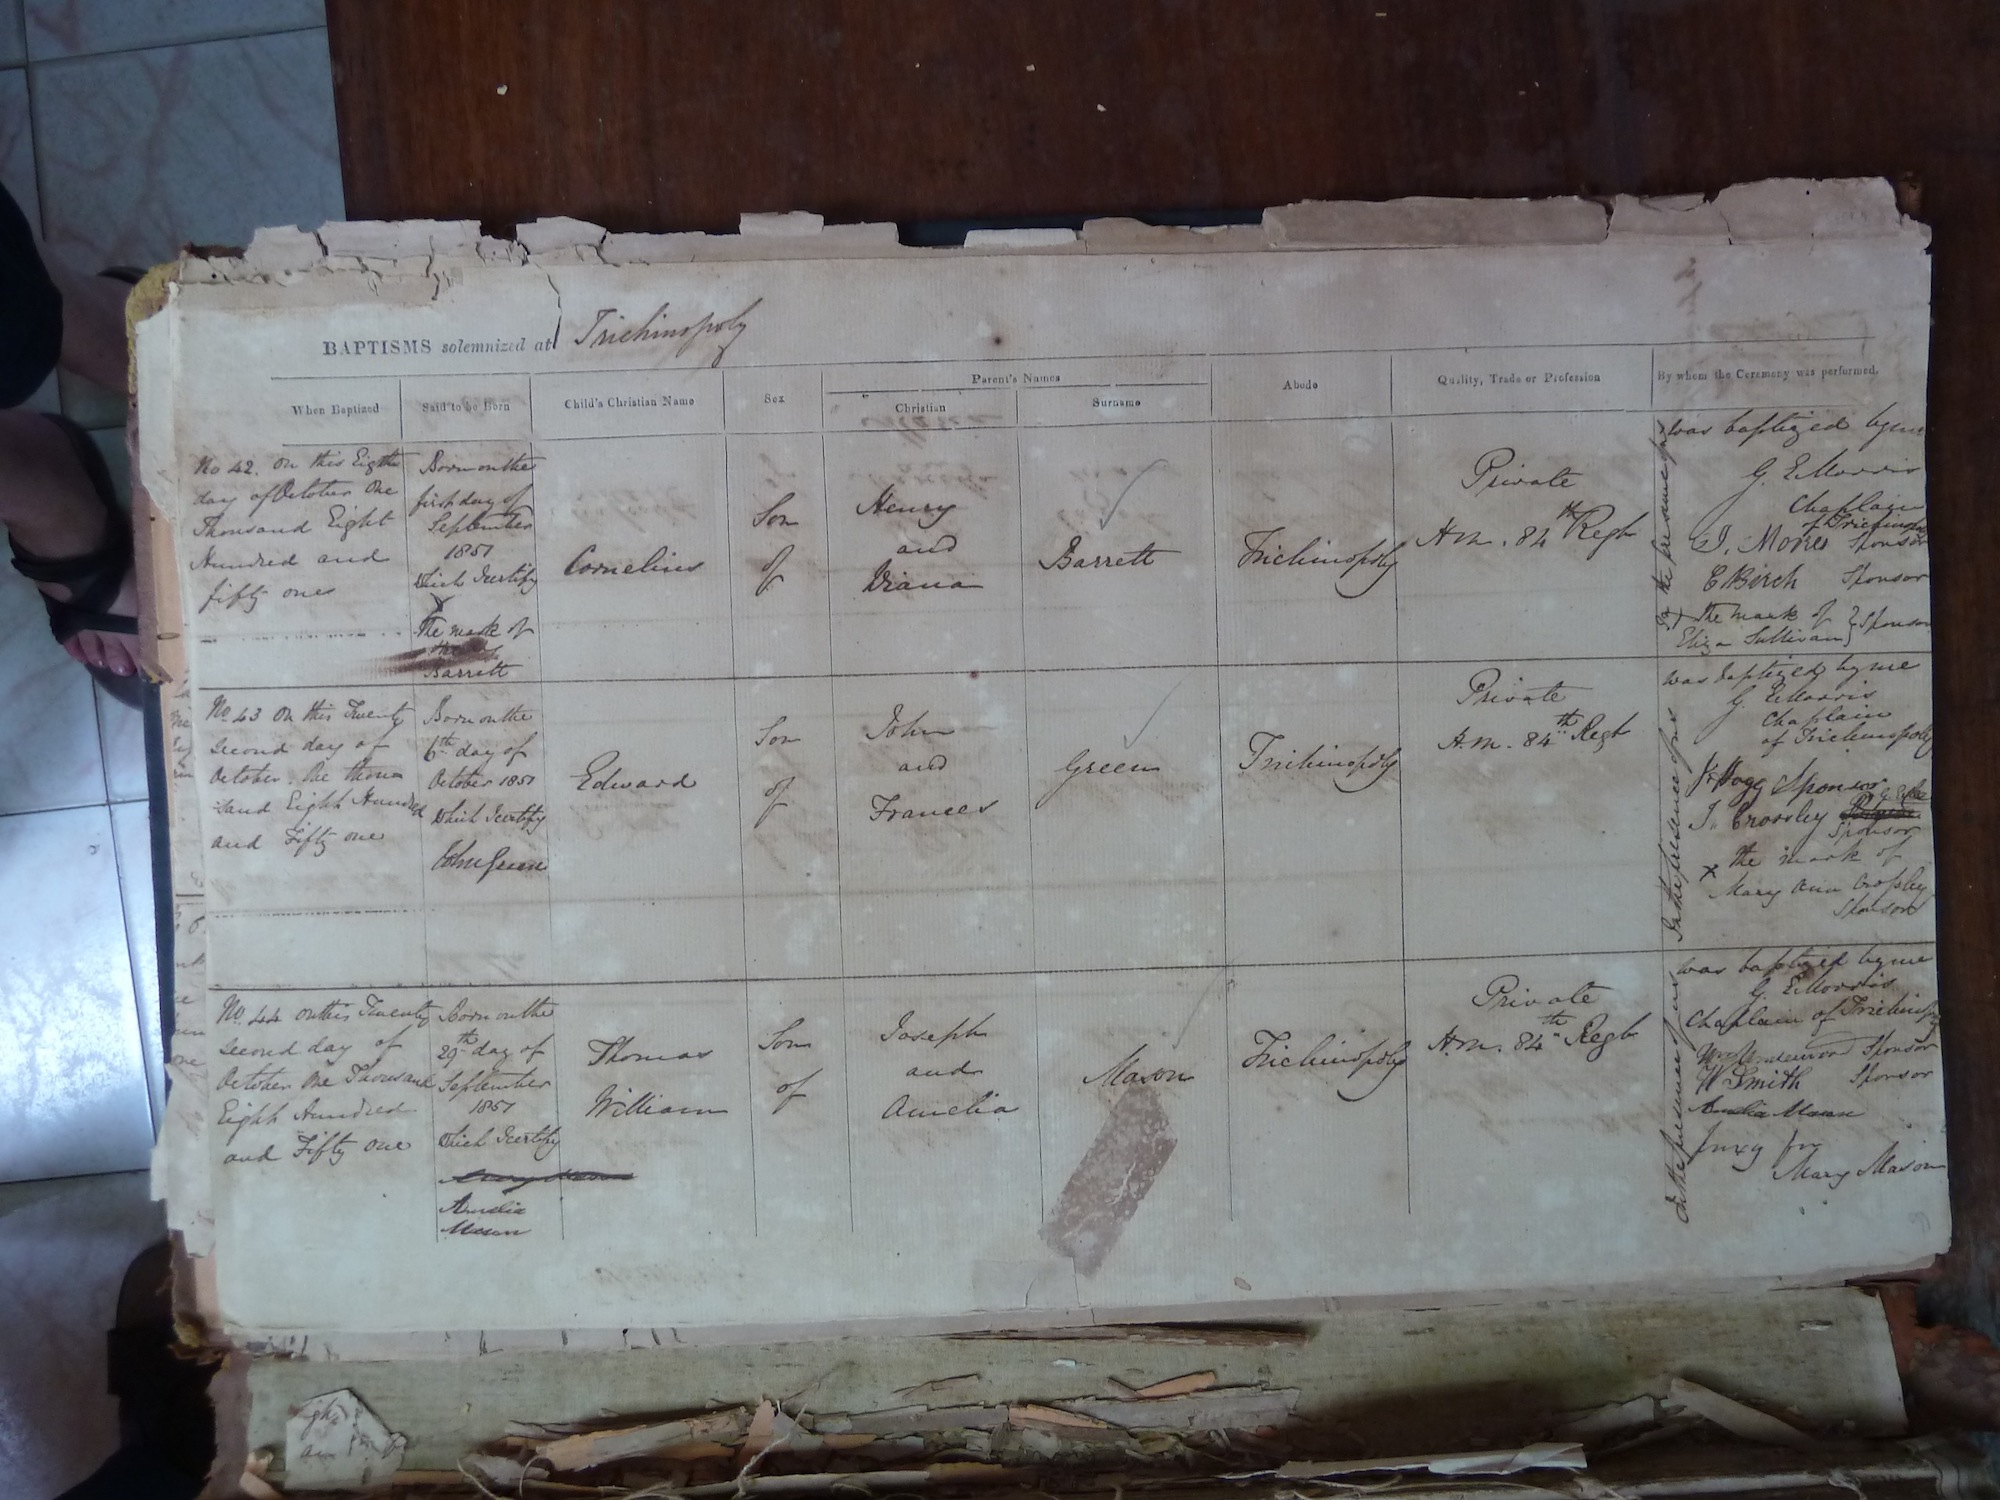 BAPTISMS solemnized at Trichinopoly
When Baptized
Said to be Born
Child's Christian Name
Sex
Parent's Names
Christian
Surname
Abode
Quality, Trade or Profession
By whom the Ceremony was performed.
No 42. On this Eigth
day of October One
Thousand Eight
Hundred and
fifty one
Born on the
first day of
September
1851
Which I certify
X
The mark of
Barrett
Cornelius
Son
of
Henry
and
Diana
Barrett
Trichinopoly
Private
H.M. 84th Regt
In the presence of us
was baptized by me
G. E. Morris
Chaplain
of Trichinopoly
J. Moires Sponsor
C Birch Sponsor
X The mark of } Sponsor
Eliza Sullivan
No. 43 On this Twenty
second day of
October. One thou
sand Eight Hundred
and Fifty one
Born on the
6th day of
October 1851
Which I certify
John Green
Edward
Son
of
John
and
Frances
Green
Trichinopoly
Private
H.M. 84th Regt
In the presence of us
was baptized by me
G. E. Morris
Chaplain
of Trichinopoly
Hogg Sponsor
J. Crossley
Sponsor
X the mark of
Mary Ann Crossley
Sponsor
No. 44 on this Twenty
second day of
October One Thousand
Eight Hundred
and Fifty one
Born on the
29th day of
September
1851
Which I certify
Amelia
Mason
Thomas
William
Son
of
Joseph
and
Amelia
Mason
Trichinopoly
Private
H.M. 84th Regt
In the presence of us
was baptized by me
G. E. Morris
Chaplain of Trichinopoly
Wm Underwood Sponsor
W Smith Sponsor
Amelia Mason
for
Mary Mason